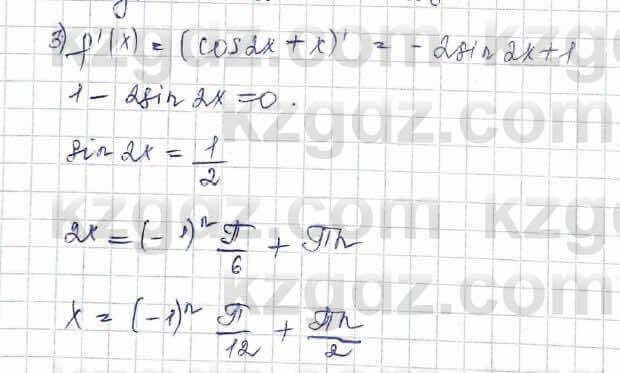 3) f'(x) = (cos2x + x)' = -2sin 2x + 1
1 - 2sin 2x = 0.
sin 2x = 1/2
2x = (-1)ⁿ π/6 + πn
x = (-1)ⁿ π/12 + πn/2
kzgdz.com
kzgdz.com